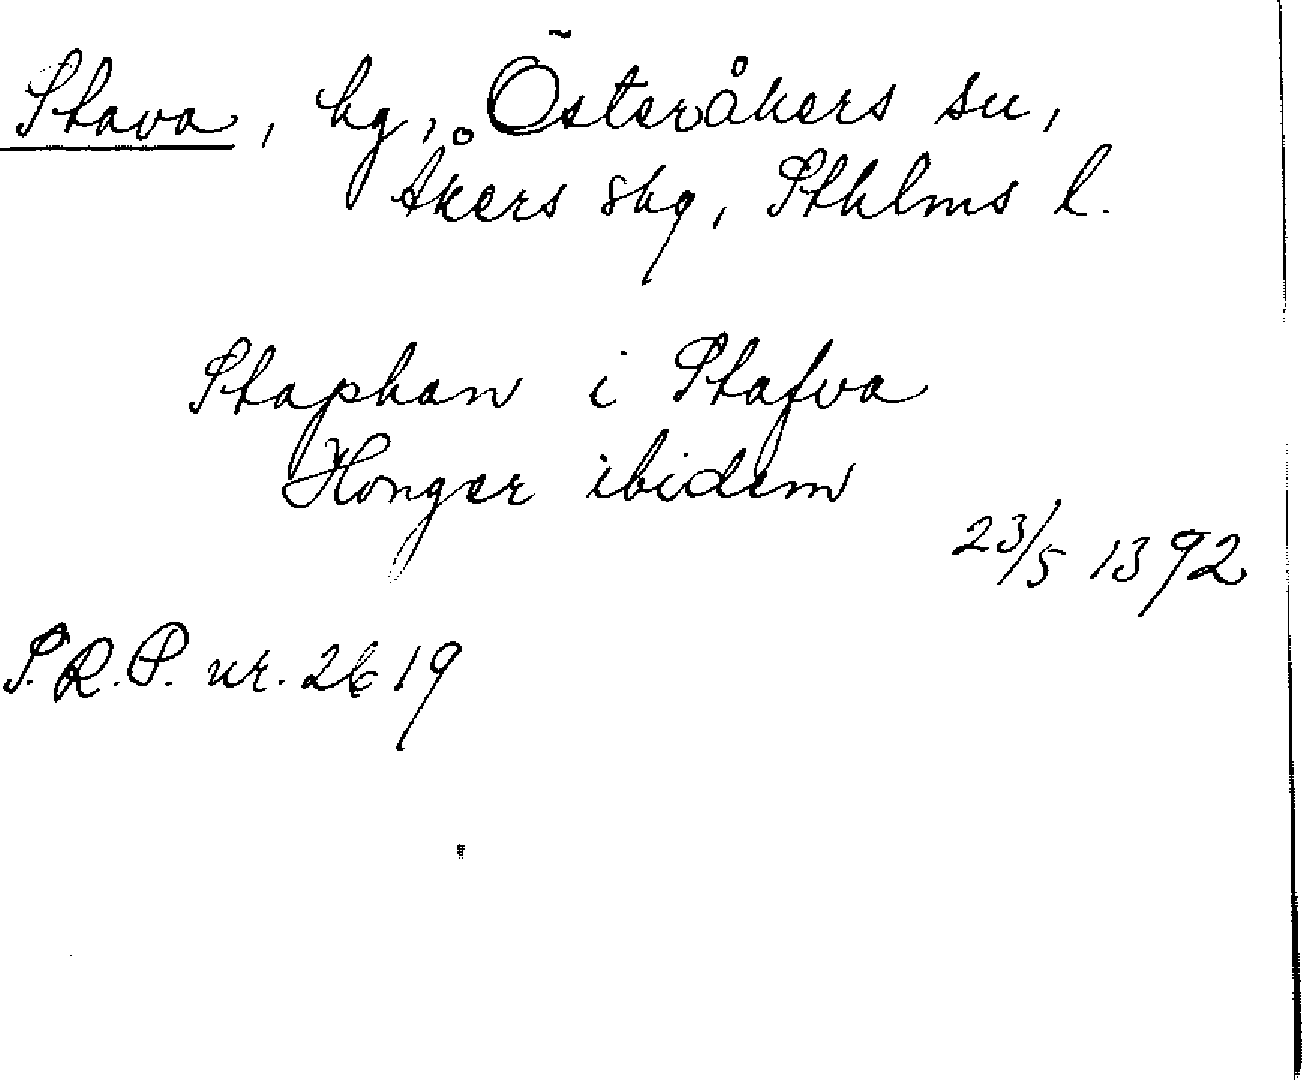 Stava, by, Österåkers sn,
Åkers skg, Sthlms l.
Staphan i Stafva
Honger ibidem
23/5 1392
S.R.P. nr. 2619